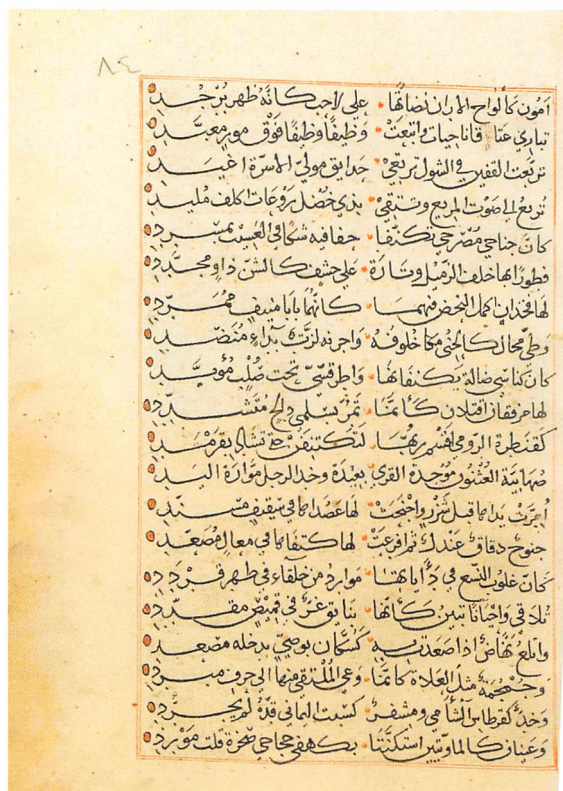 ٨٤
امون كالواح الاران نضاتها على لاحب كانه ظهر برجد
تباري عتاقا ناجيات واتبعت وظيفا وظيفا فوق مور معبد
تربعت القفين في الشول ترتعي حدايق مولي الاسرة اغيد
تريع الى صوت المهيب وتتقي بذي خصل روعات اكلف ملبد
كان جناحي مضرحي تكنفا حفافيه شكا في العسيب بمسرد
فطورا بها خلف الزميل وتارة على حشف كالشن ذاو مجدد
لها فخذان اكمل النحض فيهما كانهما بابا منيف ممرد
وطي محال كالحني خلوفه واجرنة لزت بداء منضد
كان كناسي ضالة يكنفانها واطر قسي تحت صلب مؤيد
لها مرفقان افتلان كانما تمر بسلمي دالج متشدد
كقنطرة الرومي اقسم ربها لتكتنفن حتى تشاد بقرمد
صهابية العثنون موجدة القرى بعيدة وخد الرجل موارة اليد
امرت يداها فتل شزر واجنحت لها عضداها في سقيف مسند
جنوح دقاق عندل ثم افرعت لها كتفاها في معالى مصعد
كان علوب النسع في داياتها موارد من خلقاء في ظهر قردد
تلاقى واحيانا تبين كانها بنايق غر في قميص مقدد
واتلع نهاض اذا صعدت به كسكان بوصي بدجلة مصعد
وجمجمة مثل العلاة كانما وعى الملتقى منها الى حرف مبرد
وخد كقرطاس الشامي ومشفر كسبت اليماني قده لم يجرد
وعينان كالماويتين استكنتا بكهفي حجاجي صخرة قلت مورد